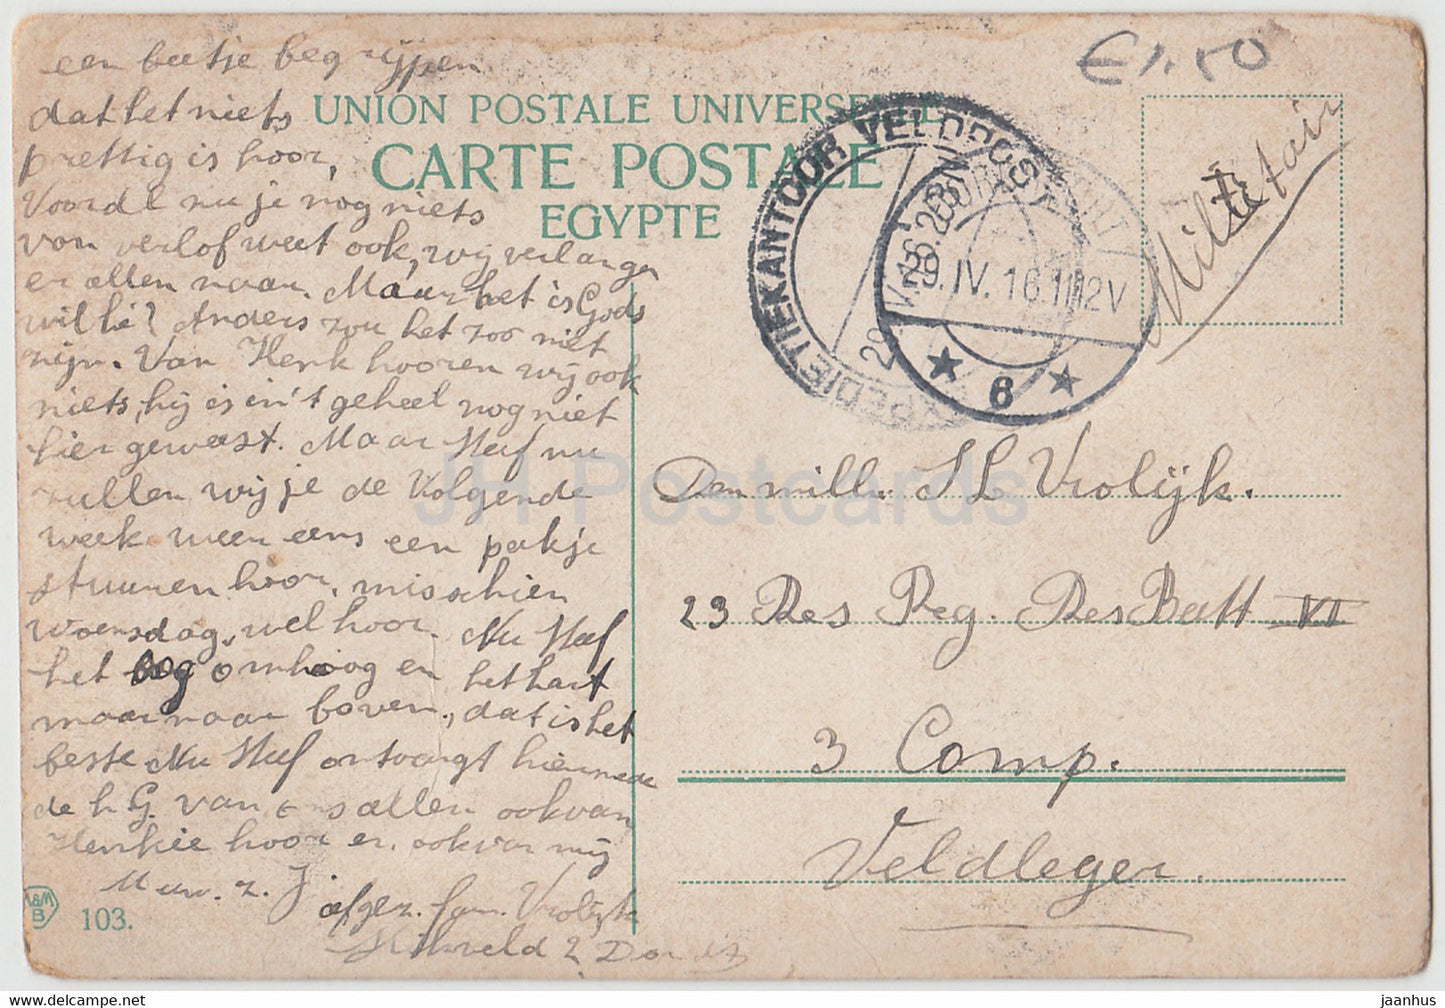 een beetje begrijpen
dat het niets
prettig is hoor,
Voordl nu je nog niets
van verlof weet ook, wij verlangen
er allen naar. Maar het is Gods
wil hé? Anders zou het zoo niet
zijn. Van Henk hooren wij ook
niets, hij is in't geheel nog niet
hier geweest. Maar Steef nu
zullen wij je de Volgende
week weer eens een pakje
stuuren hoor, misschien
woensdag, wel hoor. Nu Steef
het oog omhoog en het hart
maar naar boven, dat is het
beste Nu Steef ontvangt hiermede
de h. G. van ons allen ook van
Henkie hoor en ook van mij
z. J.
afgez. fam. Vrolijk
2
UNION POSTALE UNIVERSELLE
CARTE POSTALE
EGYPTE
€1.50
Militair
EXPEDITIEKANTOOR VELDPOST
29. IV. 16. 11-12V
6
Den milt. S L Vrolijk.
23 Res Reg. Res Batt VI
3 Comp.
Veldleger.
A&M
B
103.
JH Postcards
jaanhus | HipPostcard.com